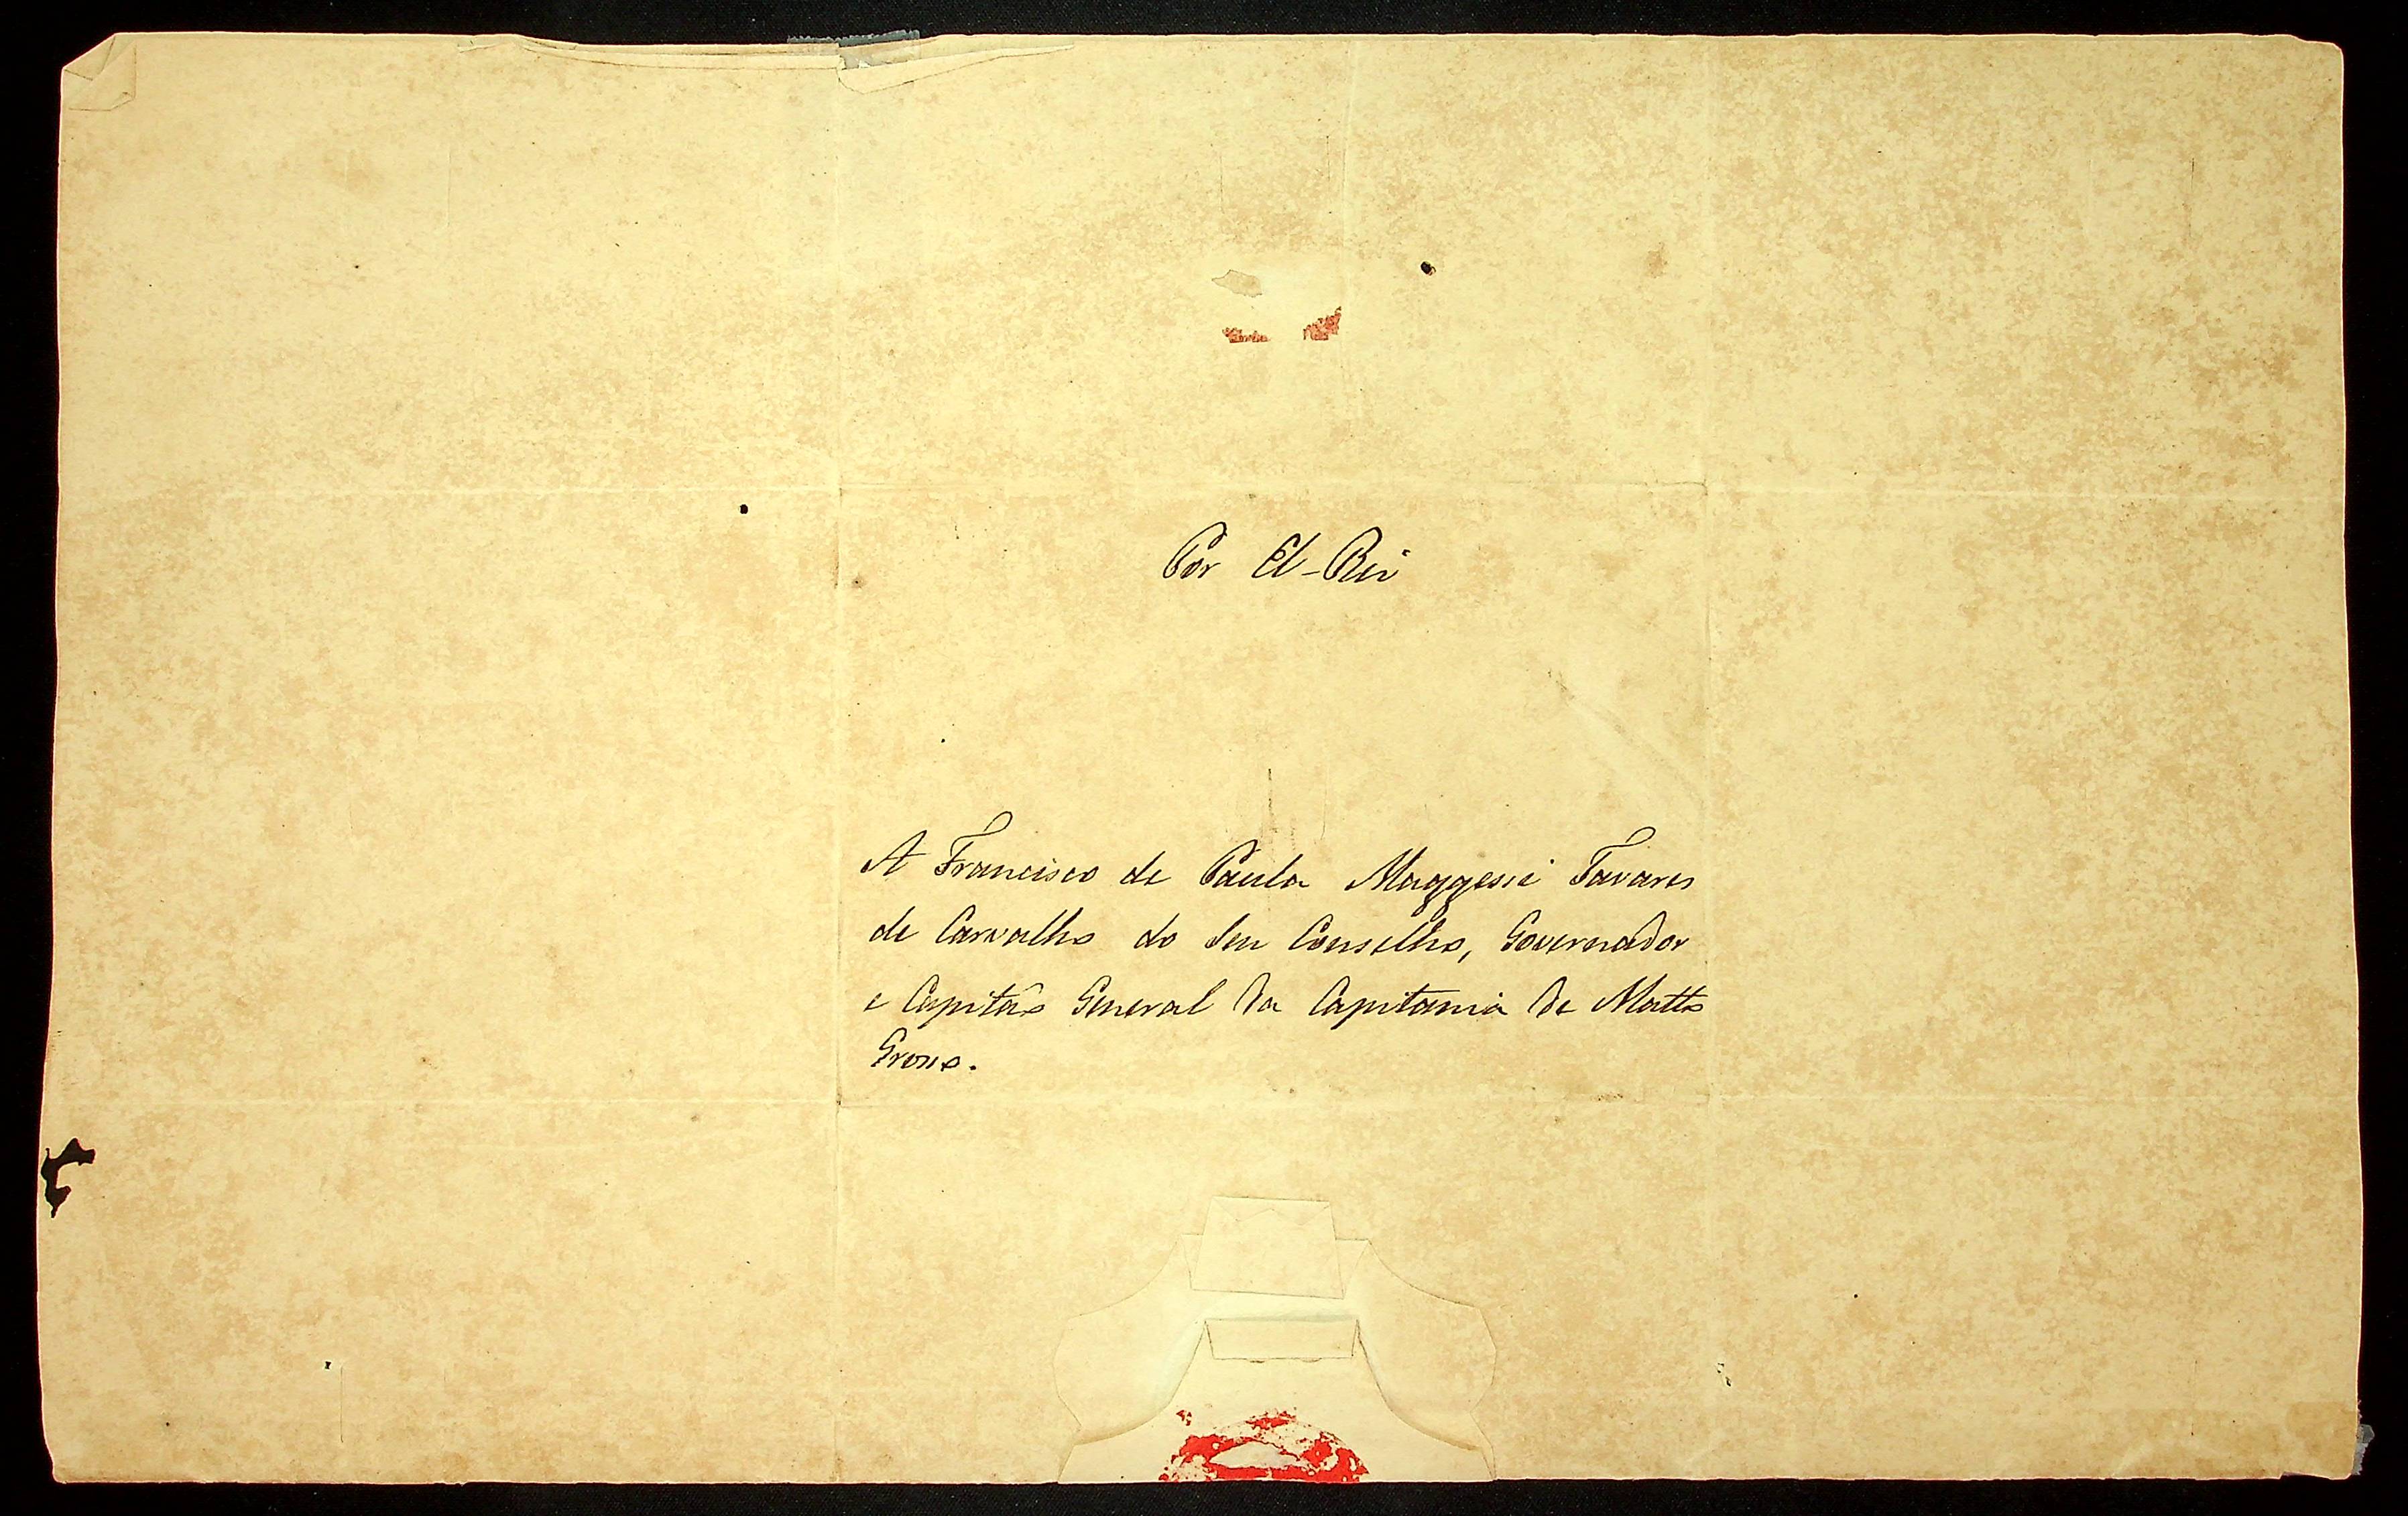 Por El-Rei
A Francisco de Paula Maggessi Tavares
de Carvalho do Seu Conselho, Governador
e Capitão General da Capitania de Matto
Grosso.